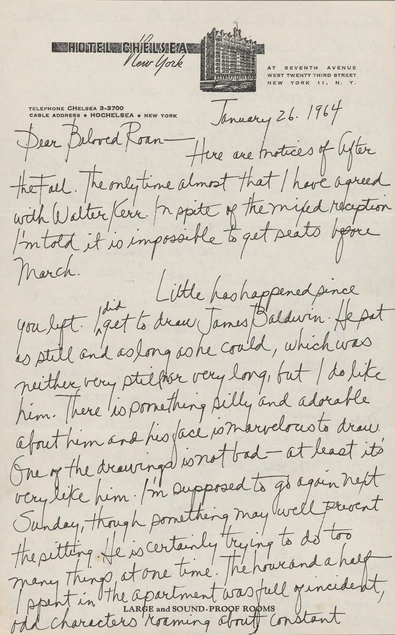 HOTEL CHELSEA
New York
AT SEVENTH AVENUE
WEST TWENTY THIRD STREET
NEW YORK 11, N. Y.
TELEPHONE CHELSEA 3-3700
CABLE ADDRESS • HOCHELSEA • NEW YORK
January 26. 1964
Dear Beloved Roan—
Here are notices of After
the Fall. The only time almost that I have agreed
with Walter Kerr. In spite of the mixed reception
I'm told it is impossible to get seats before
March.
Little has happened since
you left. I did get to draw James Baldwin. He sat
as still and as long as he could, which was
neither very still nor very long, but I do like
him. There is something silly and adorable
about him and his face is marvelous to draw.
One of the drawings is not bad — at least it's
very like him. I'm supposed to go again next
Sunday, though something may well prevent
the sitting. He is certainly trying to do too
many things, at one time. The hour and a half
I spent in the apartment was full of incident,
LARGE and SOUND-PROOF ROOMS
odd characters roaming about, constant